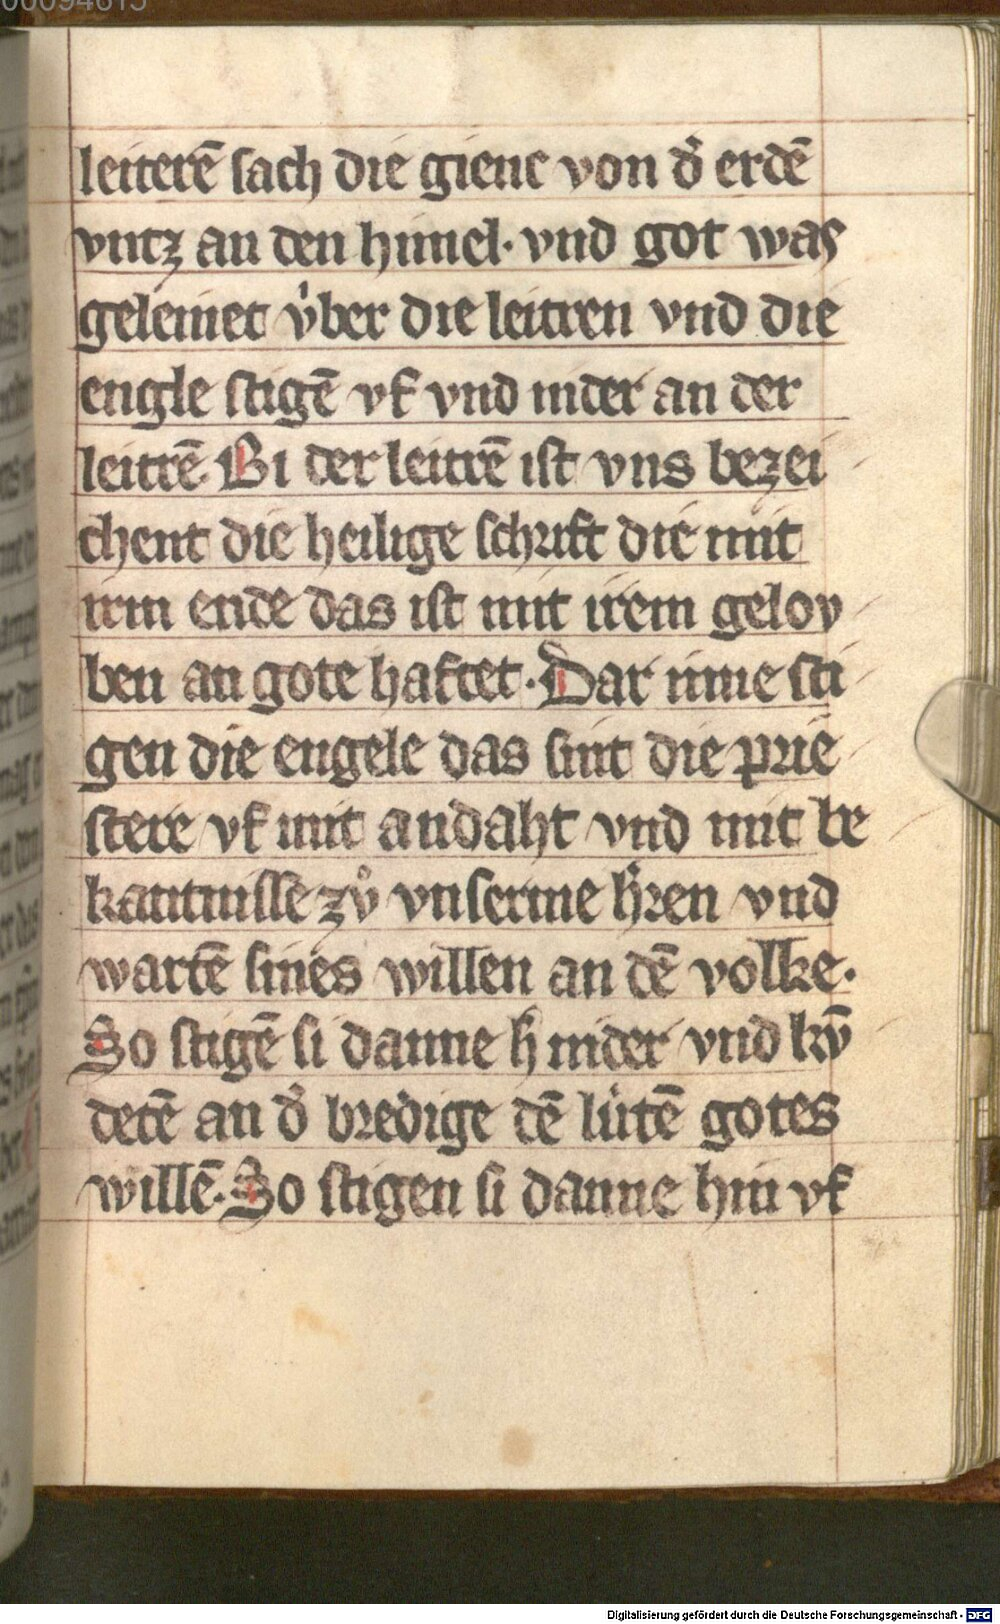 00094615
leiterē sach die giene von d̓ erdē
vntz an den himel· vnd got was
geleinet v̓ber die leitren vnd die
engle stigē vf vnd nider an der
leitrē. Bi der leitrē ist vns bezei
chent die heilige schrift die mit
irm ende das ist mit irem gelov
ben an gote haftet· Dar inne sti
gen die engele das sint die prie
stere vf mit andaht vnd mit be
kantnisse zv̊ vnserme h̓ren vnd
wartē sines willen an dē volke·
So stigē si danne h̓ nider vnd kv̄
detē an d̓ bredige dē lu̓tē gotes
willē· So stigen si danne hin vf
Digitalisierung gefördert durch die Deutsche Forschungsgemeinschaft - DFG